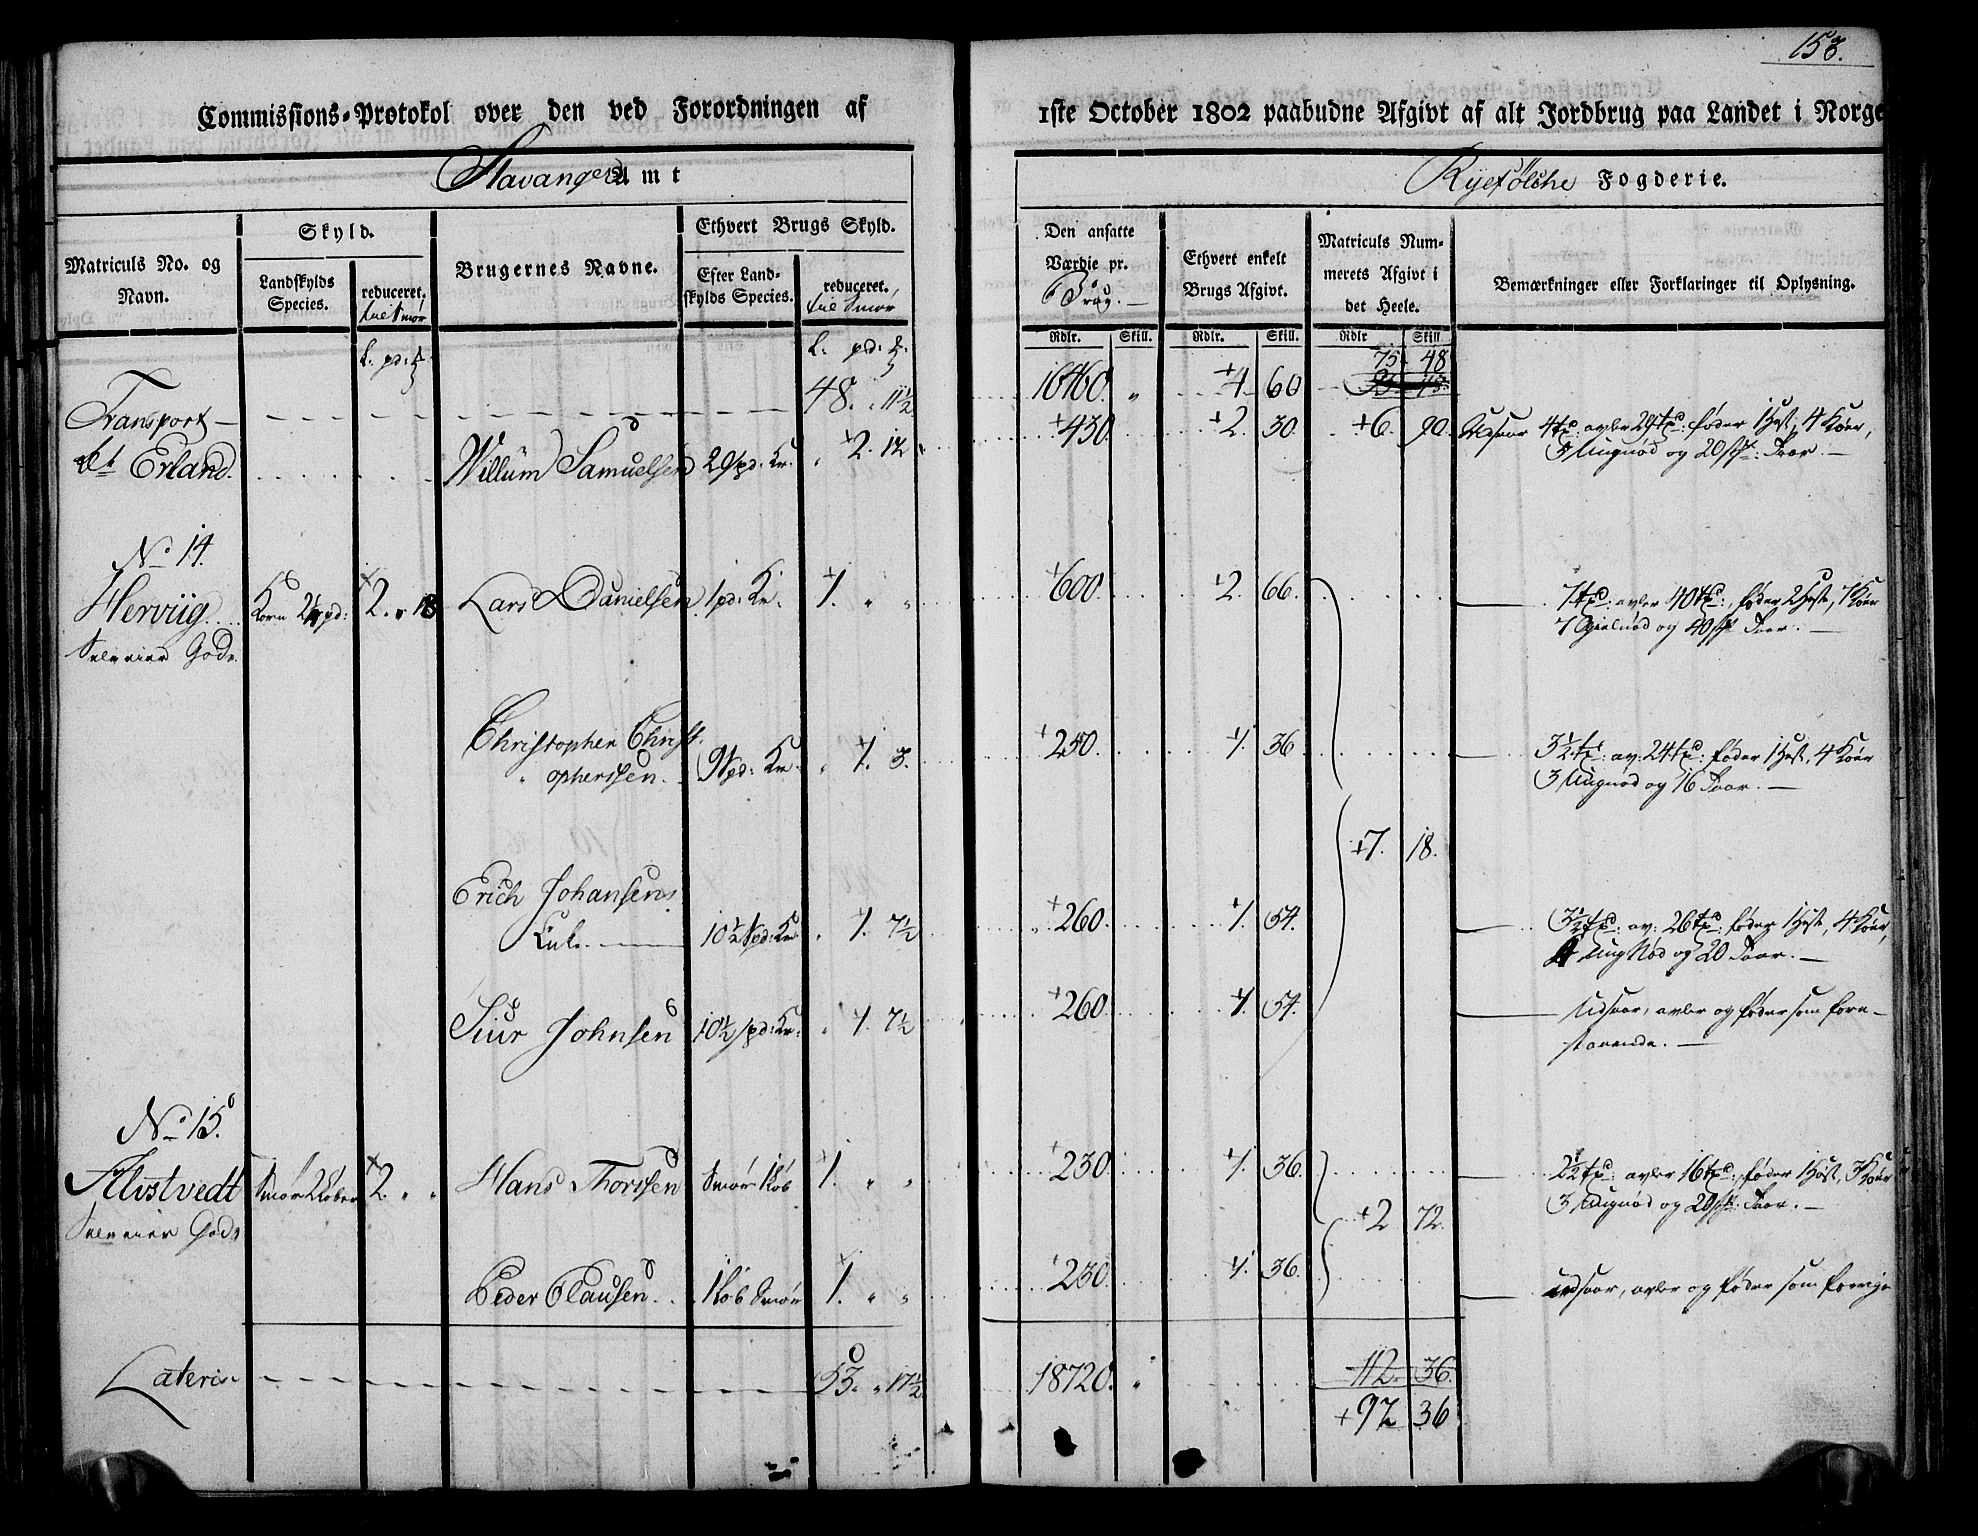 153.
Commissions-Protokol over den ved Forordningen af 1ste October 1802 paabudne Afgivt af alt Jordbrug paa Landet i Norge
Stavanger Amt
Ryefølche Fogderie.
Matriculs No. og Navn.
Skyld.
Landskylds Species.
reduceret, til Smør
Brugernes Navne.
Ethvert Brugs Skyld.
Efter Landskylds Species.
reduceret, til Smør
Den ansatte Værdie pr.
Ethvert enkelt Brugs Afgivt.
Matriculs Nummerets Afgivt i det Heele.
Bemærkninger eller Forklaringer til Oplysning.
Rdlr. Skill. Rdlr. Skill. Rdlr Skill
75 48
Transport 48. 11½ 16460 4 60
Erland. Willum Samuelsen 2 12 430 2. 30. +6. 90. Udsaar 4 avler 29 føder 1 Hest, 4 Køer,
3 Ungnød og 20 Faar.
No 14.
Herviig Korn 2 pd: 2. 18 Lars Danielsen 1 pd: 1. 600 2. 66. 7 avler 40 føder 2 Heste, 7 Køer
Selveier Gods 7 og 40 Faar.
Christopher Christopherssen 9 1. 3. 250. 1. 36 3½ av: 24 føder 1 Hest, 4 Køer
3 Ungnød og 16 Faar.
+7. 18.
Erich Johansens
10½ 1. 7½ 260 1. 54. 3½ av: 26 føder 1 Hest, 4 Køer,
4 Ung Nød og 20 Faar.
Siur Johnsen 10½ 1. 7½ 260 1. 54. Udsaar, avler og føder som forestaaende.
No 15.
Alvstvedt Smør 2 Løber 2. Hans Thorssen Smør 1 Løb 1. 230 1. 36. 2½ avler 16 føder 1 Hest, 3 Køer
Selveier Gods 3 Ungnød og 20 Faar.
+2 72.
Peder Clausen 1 Løb Smør 1. 230 1. 36. udsaar, avler og føder som forrige
Lateris 53. 17½ 18720. 112. 36.
+92 36